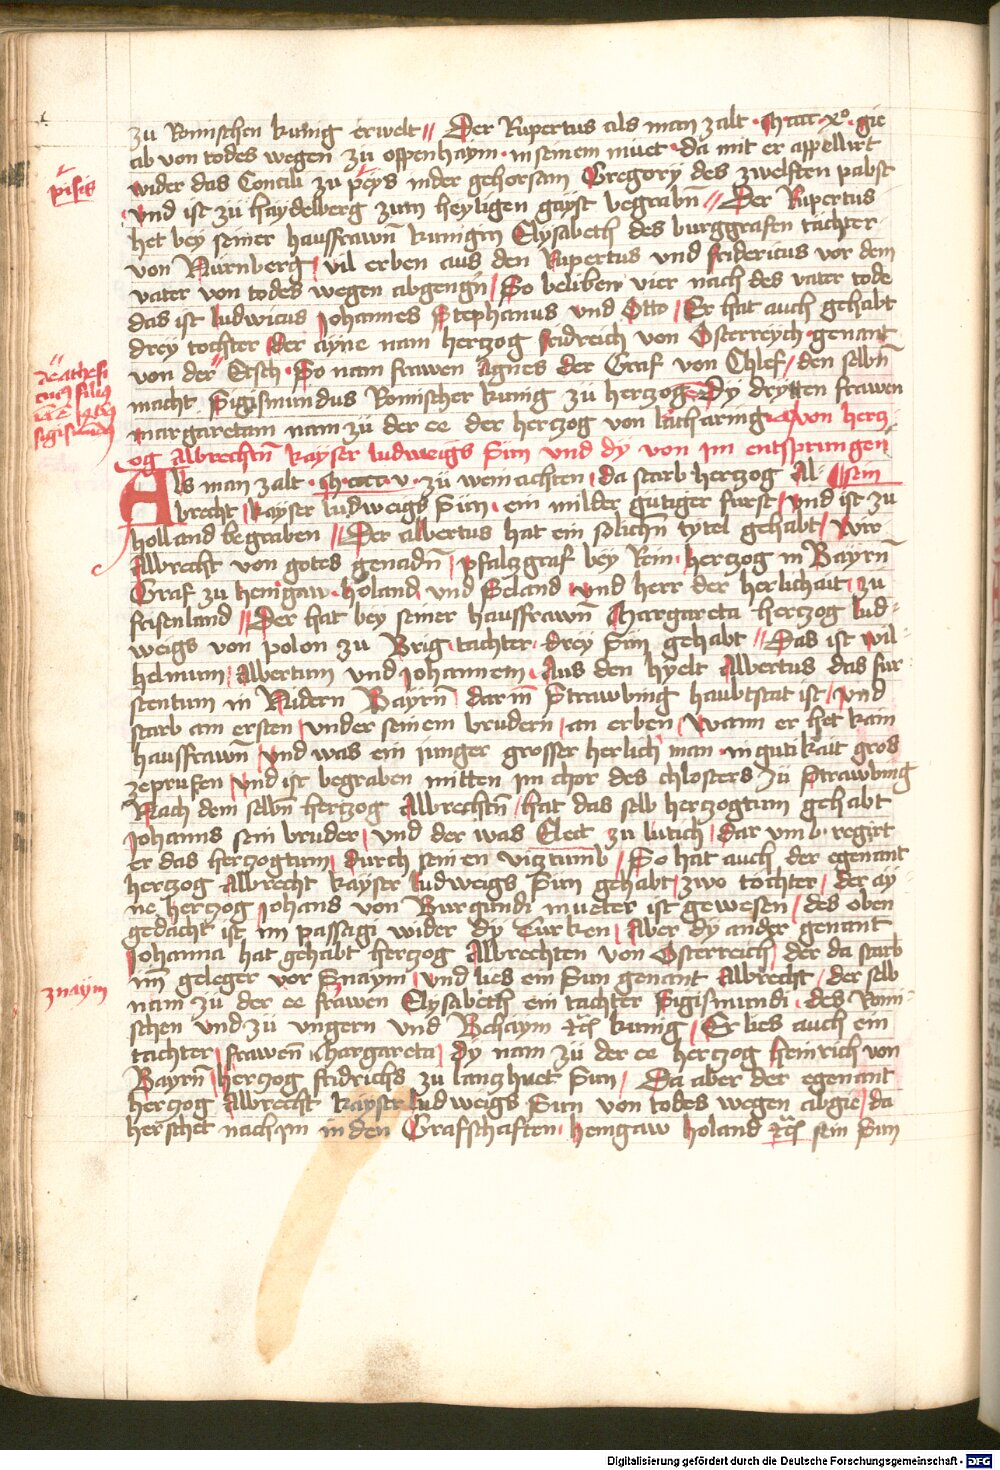 zu Romischen kunig erwelt // Der Rupertus als man zalt · M cccc x° · gie
ab von todes wegen zu oppenhaym · in seinem muet · da mit er appellirt
pisis
wider das Concili zu peys in der gehorsam Gregory des zwelften pabst
und ist zu haydelberg zum heyligen gayst begrabn̄ // Der Rupertus
het bey seiner hausfrawn̄ kunigin Elysabeth des burggrafen tachter
von Nurnberg / vil erben aus den Rupertus und fridericus vor dem
vater von todes wegen abgengn̄ / So beliben vier nach des vater tode
das ist ludwicus Johannes Stephanus und Otto / Er hat auch gehabt
drey tochter / der ayne nam hertzog fridreich von Osterreych · genant
von der Etsch · So nam frawen Agnes der Graf von Chlef / den selbn̄
macht Sigismundus Romischer kunig zu hertzog · Dy drytten frawen
margaretam nam zu der ee der hertzog von lutharing · von hertz
og Albrechtn̄ kayser ludweigs Sun und dy von im entspringen
Als man zalt · M · cccc · v · zu weinachten · da starb hertzog Al- sein
brecht / kayser ludweigs Sun · ein milder gutiger furst / und ist zu
holland begraben // Der albertus hat ein solichn̄ tytel gehabt / Wir
Albrecht von gotes genadn̄ / pfaltzgraf bey Rein · hertzog in Bayrn̄
Graf zu henigaw · holand / und Seland und herr der herlichait / zu
frisenland // Der hat bey seiner hausfrawn̄ Margareta hertzog lud-
weigs von polon zu Brig · tachter · drey Sun gehabt // Das ist wil-
helmum / Albertum und Johannem · Aus den hyelt Albertus das fur-
stentum in Nidern Bayrn̄ dar in̄ Strawbing haubtstat ist / und
starb am ersten / under seinem brudern / an erben / wann er het kain
hausfrawn̄ / und was ein iunger grosser herlich man · in gutikait gros
zeprufen / und ist begraben mitten im chor des chlosters zu Strawbing
Nach dem selbn̄ hertzog Albrechtn̄ / hat das selb hertzogtum gehabt
Johanns sein bruder / und der was Elect zu lutich / dar umb · regirt
er das hertzogtum / durch seinen viztumb / So hat auch der egenant
hertzog Albrecht kayser ludweigs Sun gehabt / zwo tochter / der ay
ne hertzog Johans von Burgundi mueter ist gewesen / des oben
gedacht ist im passagi wider dy Turken / Aber dy ander genant
Johanna hat gehabt hertzog Albrechten von Osterreich / der da starb
znaym
im̄ geleger vor Snaym / und lies ein Sun genant Albrecht / der selb
nam zu der ee frawen Elysabeth ein tachter Sigismundi · des Romi-
schen und zu ungern und Behaym etc̄ kunig / Er lies auch ein
tachter / frawen̄ Margareta / dy nam zu der ee hertzog heinrich von
Bayrn̄ / hertzog fridrichs zu lanzhuet Sun / Da aber der egenant
hertzog Albrecht kayser ludweigs Sun von todes wegen abgie / da
herschet nach im in den Grafschaften · henigaw holand etc̄ sein Sun
Digitalisierung gefördert durch die Deutsche Forschungsgemeinschaft - DFG